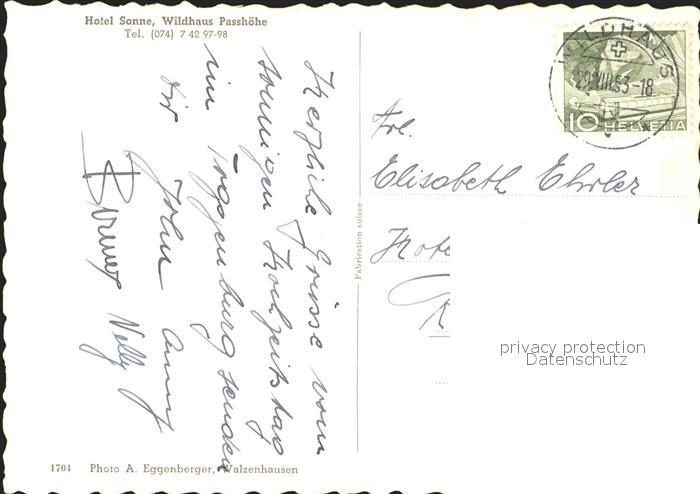 Hotel Sonne, Wildhaus Passhöhe
Tel. (074) 7 42 97-98
Herzliche Grüsse vom
sonnigen Hochzeitstag
im Toggenburg senden
dir John Anny
Werner Nelly
Fabrication suisse
WILDHAUS
29.VIII.53-18
10 HELVETIA
Frl.
Elisabeth Ehrler
privacy protection
Datenschutz
1704 Photo A. Eggenberger, Walzenhausen